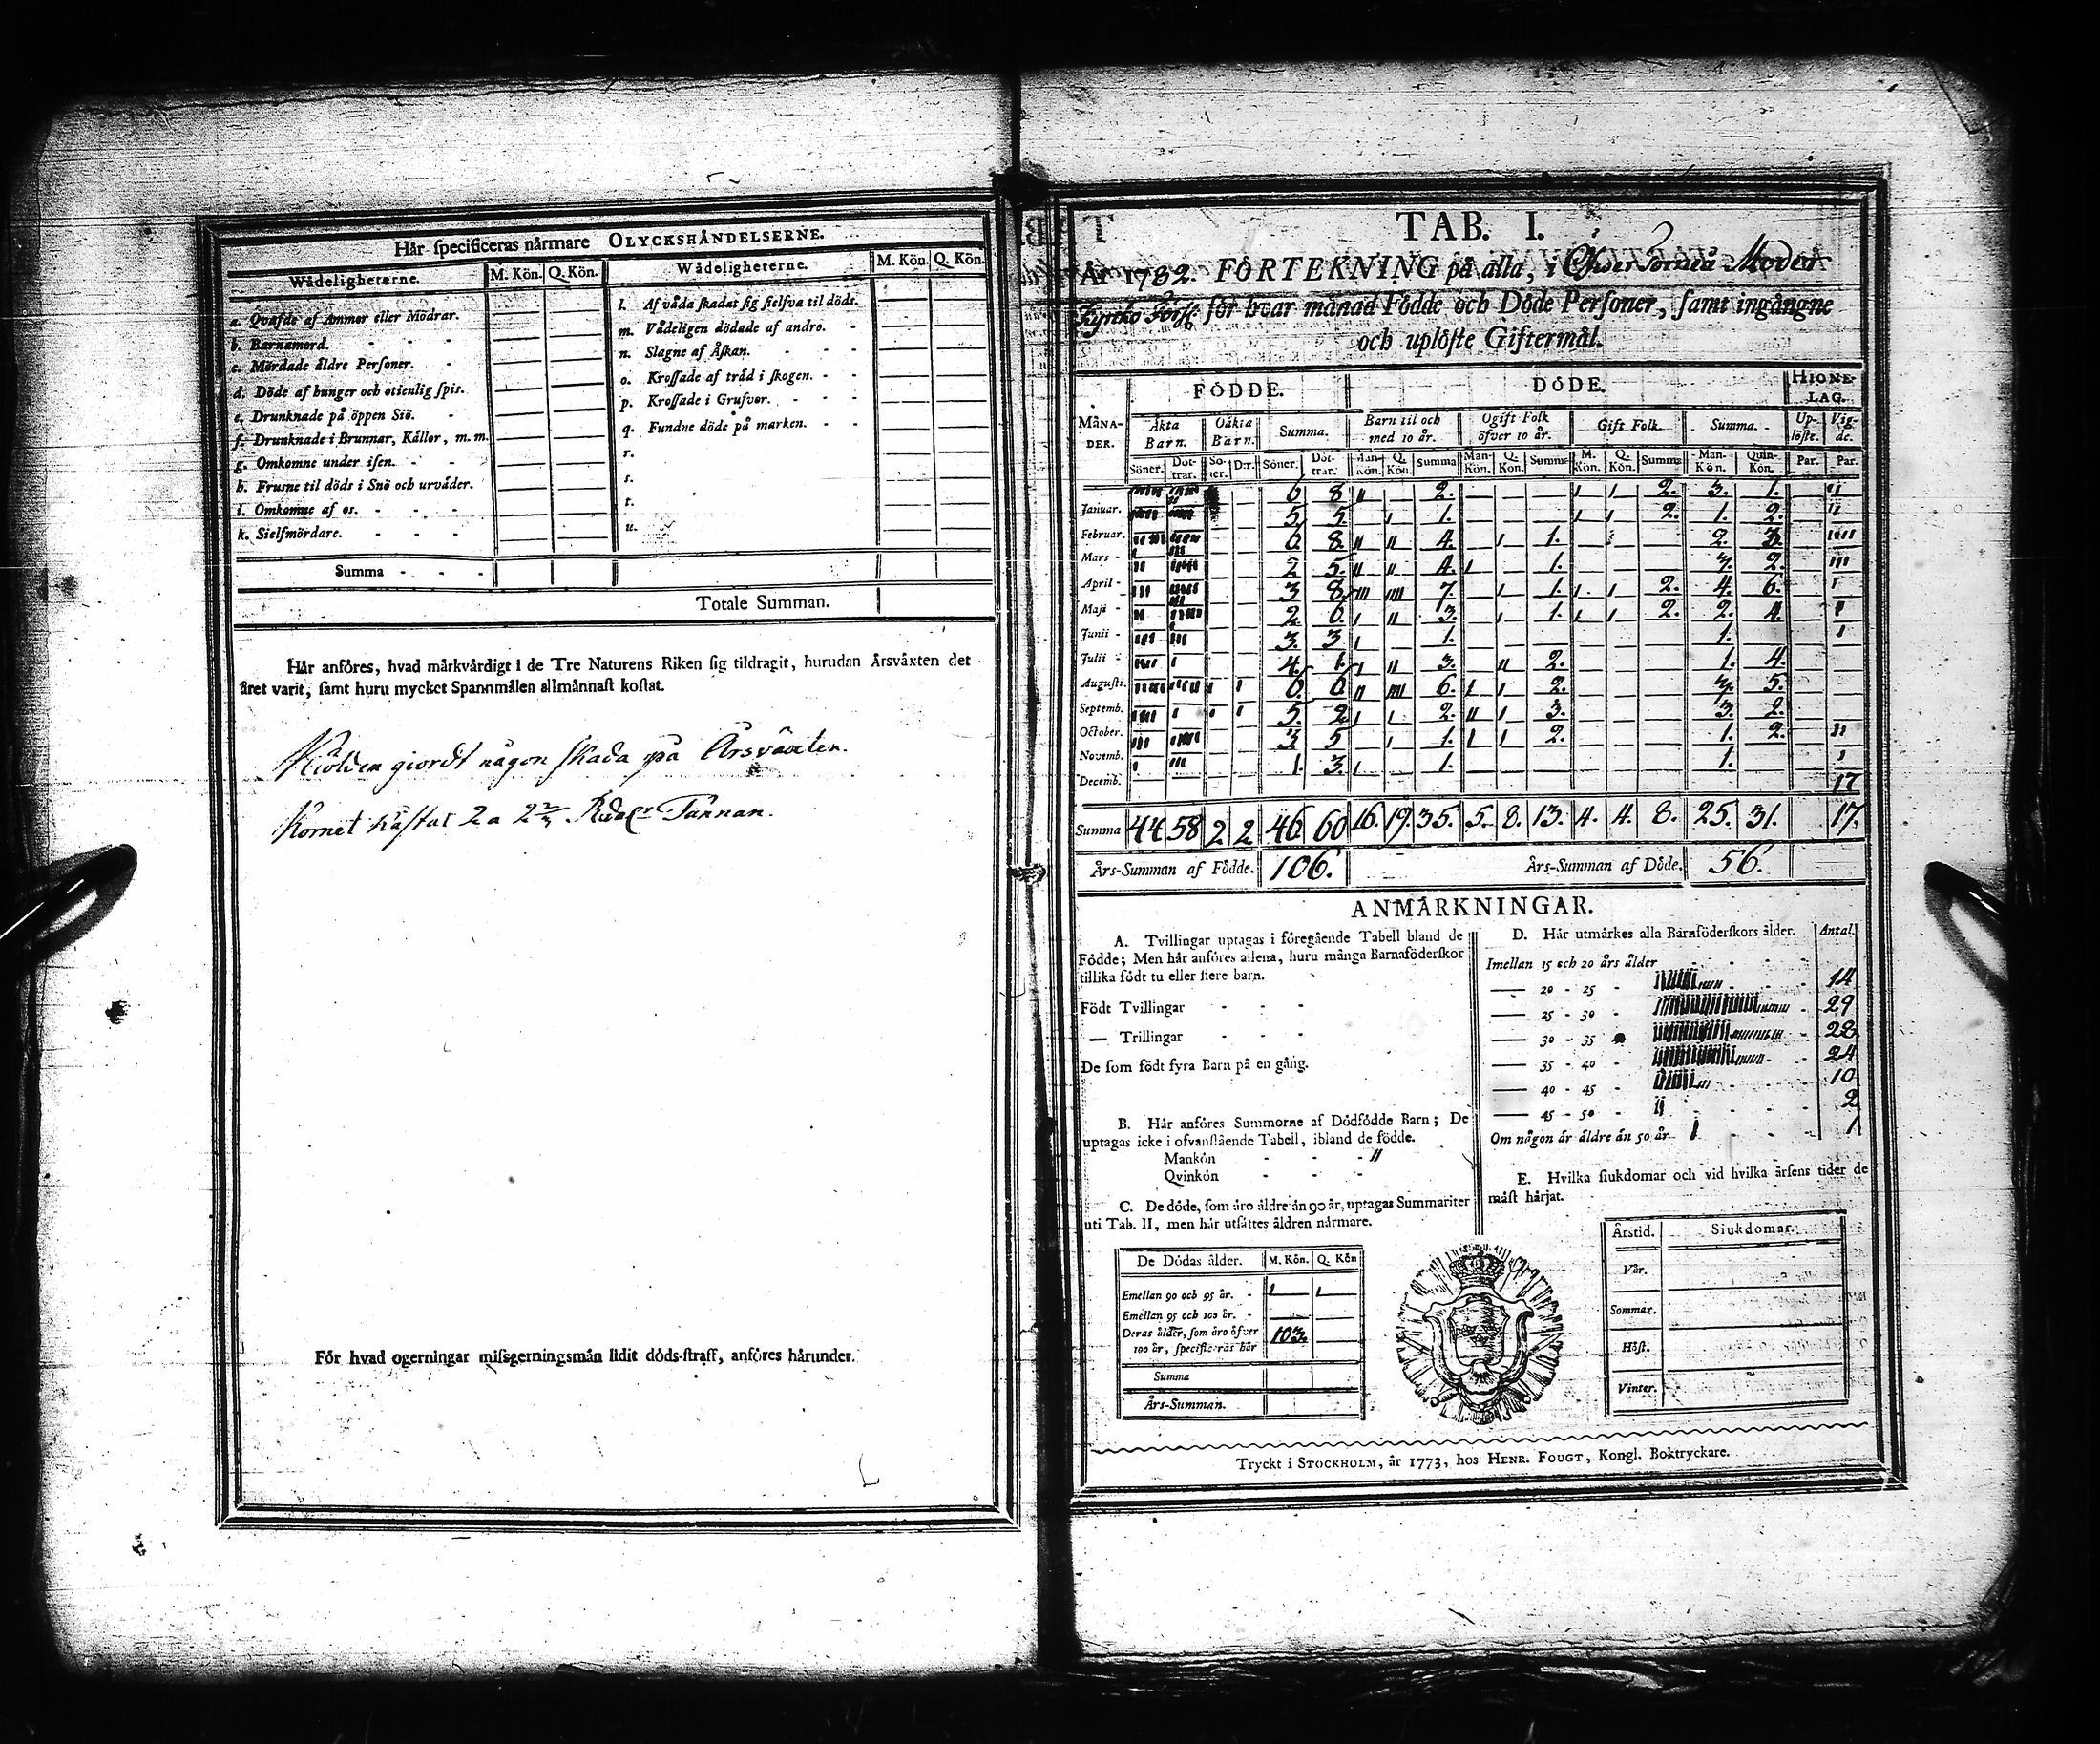 Hår specificeras nårmare OLYCKSHÅNDELSERNE.
Wådeligheterne. M. Kön. Q. Kön.
a. Qvafde af Ammor eller Mödrar. — —
b. Barnamord. — —
c. Mördade åldre Personer. — —
d. Döde af hunger och otienlig spis. — —
e. Drunknade på öppen Siö. — —
f. Drunknade i Brunnar, Kållor, m. m. — —
g. Omkomne under isen. — —
h. Frusne til döds i Snö och urvåder. — —
i. Omkomne af os. — —
k. Sielfmördare. — —
Wådeligheterne. M. Kön. Q. Kön.
l. Af våda skadat sig sielfva til döds. — —
m. Vådeligen dödade af andro. — —
n. Slagne af Åskan. — —
o. Krossade af tråd i skogen. — —
p. Krossade i Grufvor. — —
q. Fundne döde på marken. — —
r. — —
s. — —
t. — —
u. — —
Summa
Totale Summan.
Hår anföres, hvad mårkvårdigt i de Tre Naturens Riken sig tildragit, hurudan Årsvåxten det
året varit, samt huru mycket Spannmålen allmånnast kostat.
Kiölden giordt någon skada på Årsväxten.
Kornet kåstat 2 a 2 2/3 Tunnan.
För hvad ogerningar missgerningsmån lidit döds-straff, anföres hårunder.
TAB. I.
År 1782. FÖRTEKNING på alla, i Öfwer Torneå Moder
Kyrcko Förs: för hvar månad Födde och Döde Personer, samt ingångne
och uplöste Giftermål.
MÅNA-DER. FÖDDE. DÖDE. HIONE-LAG.
Åkta Barn. Oåkta Barn. Summa. Barn til och med 10 år. Ogift Folk öfver 10 år. Gift Folk. Summa. Up-löste. Vig-de.
Söner. Döt-trar. Sö-ner. D:r. Söner. Döt-trar. Man-Kön. Q. Kön. Summa Man-Kön. Q. Kön. Summa M. Kön. Q. Kön. Summa Man-Kön. Quin-Kön. Par. Par.
Januar. 6 8 2. 2. 3. 1.
Februar. 5 5. 1. 2. 1. 2.
Mars 6. 8. 4. 1. 2. 3.
April 2 5. 4. 1. 3. 2.
Maji 3 8. 7. 1. 2. 4. 6.
Junii 2. 6. 3. 1. 2. 2. 4.
Julii 3. 3 1. 1.
Augusti. 4. 1. 3. 2. 1. 4.
Septemb. 6. 6. 6. 2. 3. 5.
October. 5. 2 2. 3. 3. 2.
Novemb. 3 5 1. 2. 1. 2.
Decemb. 1. 3. 1. 1.
17
Summa 44 58 2 2 46. 60 16. 19. 35. 5. 8. 13. 4. 4. 8. 25. 31. 17.
Års-Summan af Födde. 106. Års-Summan af Döde. 56.
ANMÅRKNINGAR.
A. Tvillingar uptagas i föregående Tabell bland de
Födde; Men hår anföres allena, huru många Barnaföderskor
tillika födt tu eller flere barn.
Födt Tvillingar
— Trillingar
De som födt fyra Barn på en gång.
B. Hår anföres Summorne af Dödfödde Barn; De
uptagas icke i ofvanstående Tabell, ibland de födde.
Mankön - - - 11
Qvinkön - - -
C. De döde, som åro åldre ån 90 år, uptagas Summariter
uti Tab. II, men hår utsåttes åldren nårmare.
De Dödas ålder. M. Kön. Q. Kön
Emellan 90 och 95 år. 1 1
Emellan 95 och 100 år. —
Deras ålder, som åro öfver
100 år, specificeras hår 103.
Summa
Års-Summan.
D. Hår utmårkes alla Barnföderskors ålder. Antal.
Imellan 15 och 20 års ålder
— 20 - 25 14
— 25 - 30 29
— 30 - 35 28
— 35 - 40 24
— 40 - 45 10
— 45 - 50 2
Om någon år åldre ån 50 år 1
E. Hvilka siukdomar och vid hvilka årsens tider de
måst hårjat.
Årstid. Siukdomar.
Vår.
Sommar.
Höst.
Vinter.
Tryckt i STOCKHOLM, år 1773, hos HENR. FOUGT, Kongl. Boktryckare.